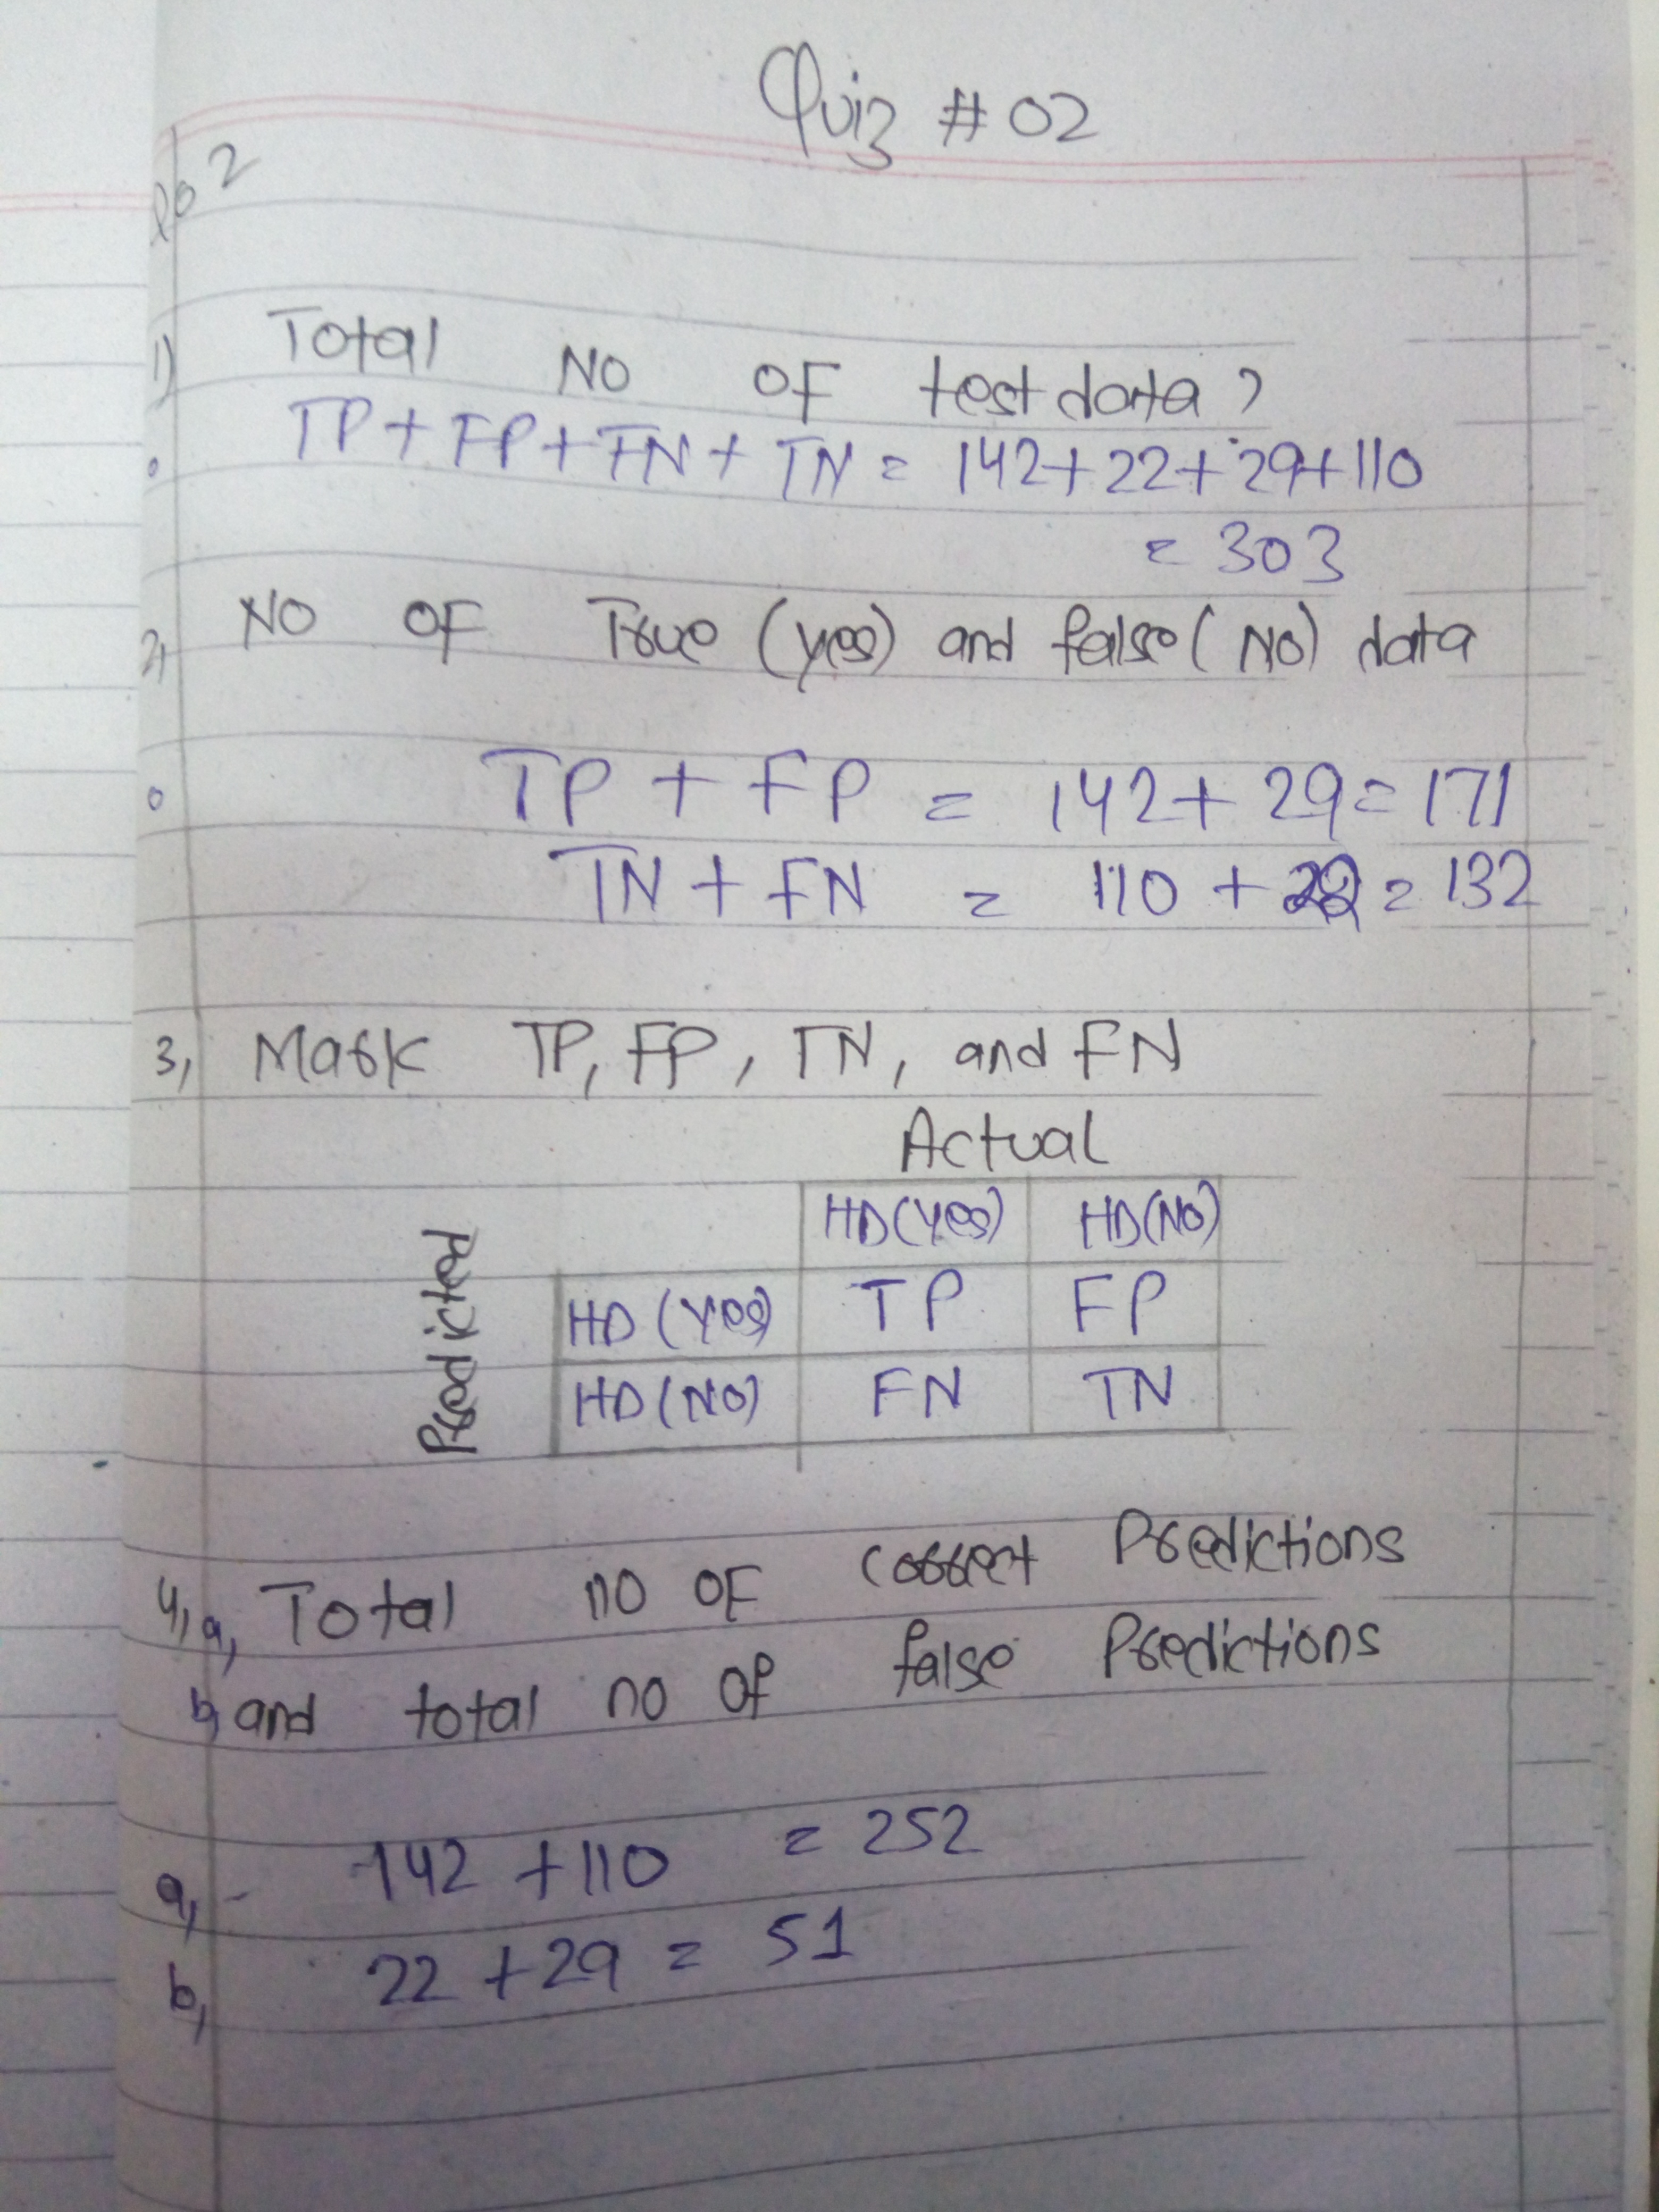 Quiz #02
1) Total No OF test data?
TP + FP + FN + TN = 142 + 22 + 29 + 110
= 303
2, No OF True (Yes) and false (No) data
TP + FP = 142 + 29 = 171
TN + FN = 110 + 22 = 132
3, Mark TP, FP, TN, and FN
Actual
HD(Yes) HD(No)
Predicted
HD (Yes) TP FP
HD (No) FN TN
4, a, Total no OF correct Predictions
b, and total no of false Predictions
a, - 142 + 110 = 252
b, 22 + 29 = 51